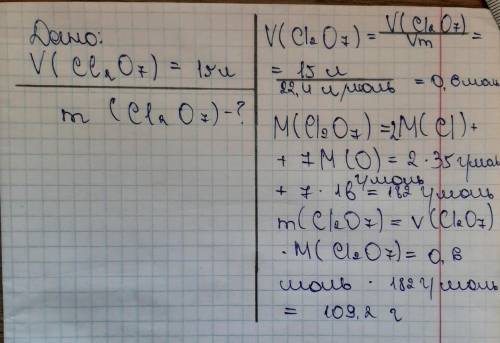 Дано:
V(Cl2O7) = 15 л
m (Cl2O7) - ?
V(Cl2O7) = V(Cl2O7) / Vm =
= 15 л / 22,4 л/моль = 0,6 моль
M(Cl2O7) = 2M(Cl) +
+ 7M(O) = 2 · 35 г/моль
+ 7 · 16 г/моль = 182 г/моль
m(Cl2O7) = ν(Cl2O7)
· M(Cl2O7) = 0,6
моль · 182 г/моль
= 109,2 г